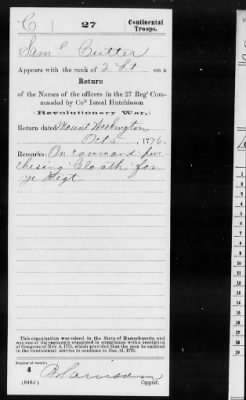 C 27 Continental
Troops.
Saml Cutter
Appears with the rank of 2 Lt on a
Return
of the Names of the officers in the 27 Regt Com-
manded by Col Israel Hutchinson
(Revolutionary War,)
Return dated Mount Washington
Oct 5, 1776.
Remarks: On command pur
chesing Cloath for
ye Regt
This organization was raised in the State of Massachusetts, and
Congress of Nov. 4, 1775, which provided that the men be enlisted
in the Continental service to continue to Dec. 31, 1776.
Number of record:
4
Copyist.